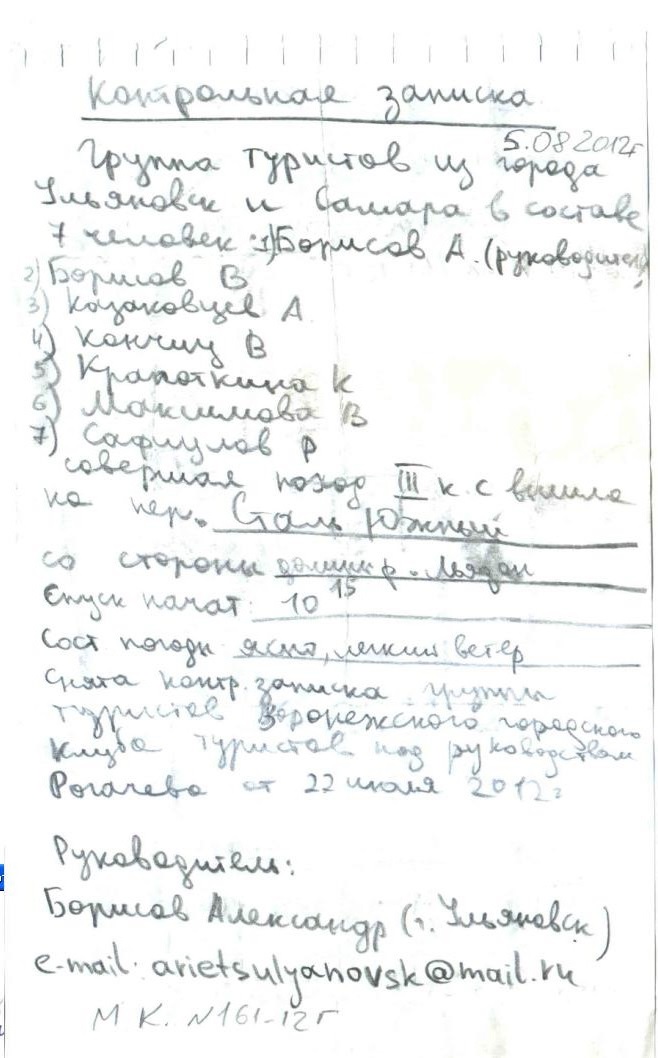 Контрольная записка
5.08 2012г
Группа туристов из города
Ульяновск и Самара в составе
7 человек: 1) Борисов А. (руководитель)
2) Борисов В
3) Казаковцев А
4) Кончиц В
5) Крапоткина К
6) Максимова В
7) Сафиулов Р
совершая поход III к.с вышла
на пер. Сталь Южный
со стороны долины р.
Спуск начат 10 15
Сост погоды ясно, легкий ветер
Снята контр. записка группы
туристов Воронежского городского
клуба туристов под руководством
Рогачева от 22 июля 2012г
Руководитель:
Борисов Александр (г. Ульяновск)
e-mail: arietsulyanovsk@mail.ru
М К. N161-12г